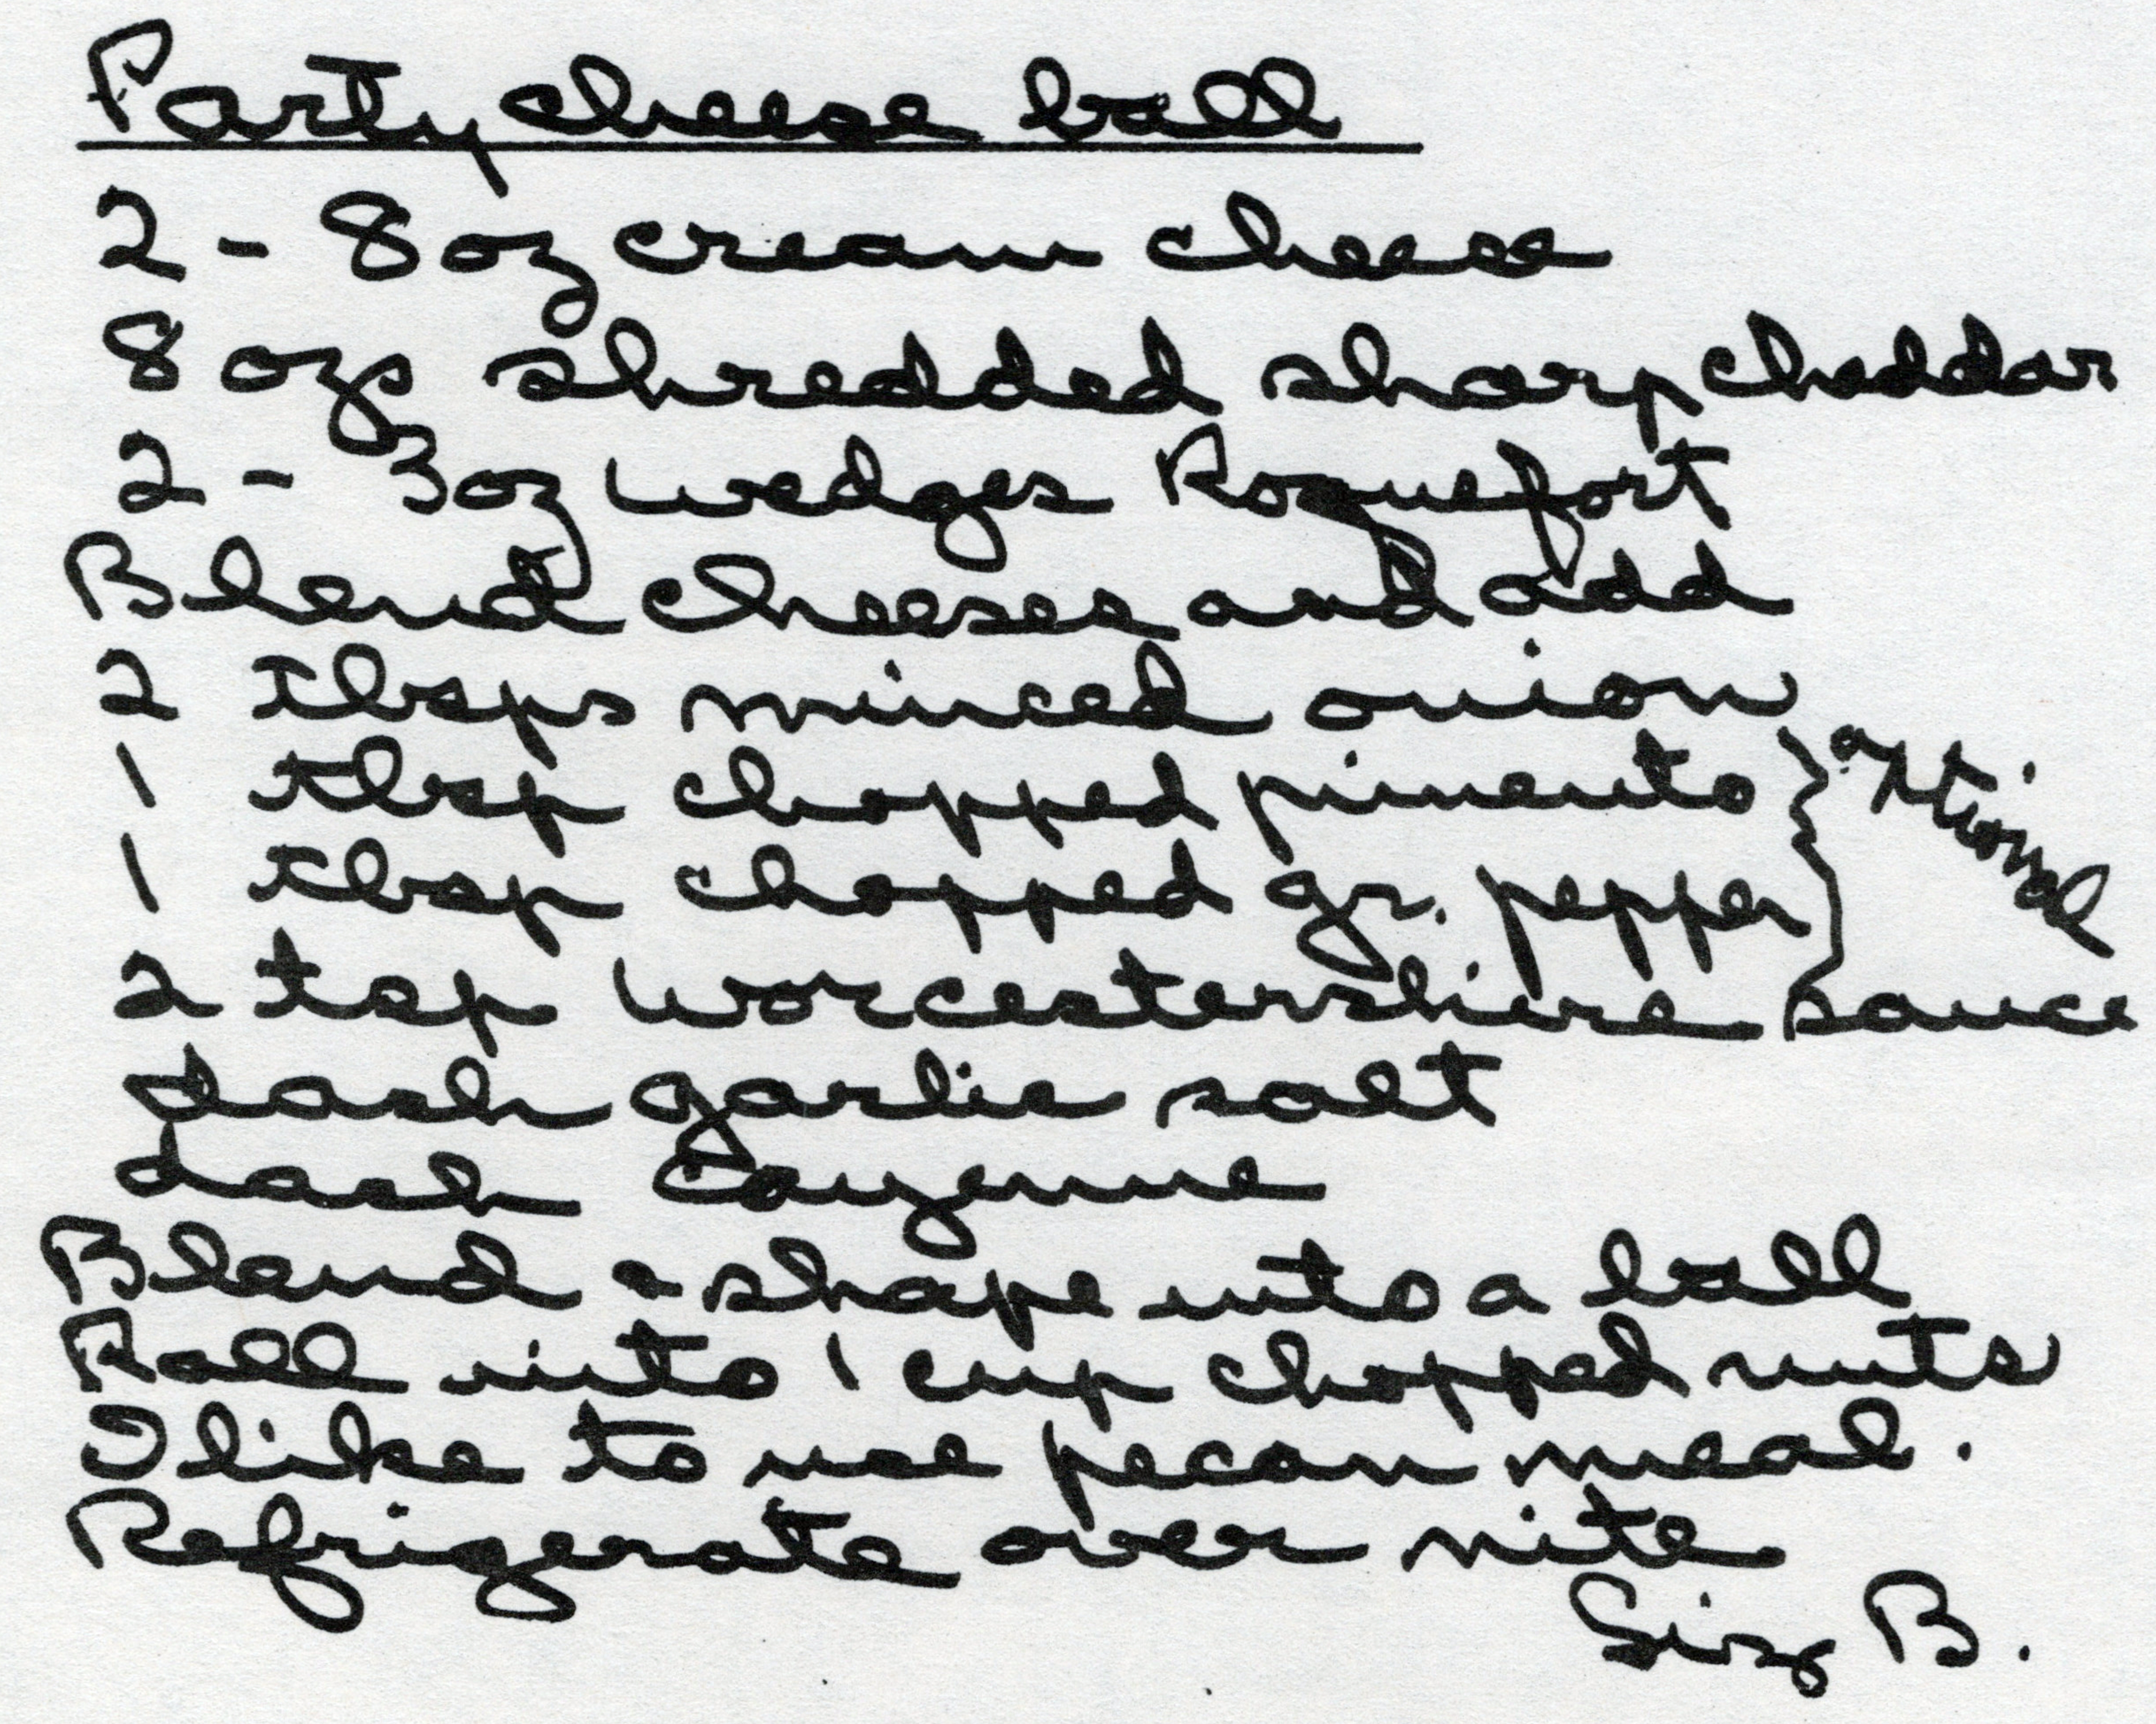 Party cheese ball
2 - 8 oz cream cheese
8 ozs shredded sharp cheddar
2 - 3 oz wedges Roquefort
Blend cheeses and add
2 tbsps minced onion
1 tbsp chopped pimento } optional
1 tbsp chopped gr. pepper
2 tsp worcestershire sauce
dash garlic salt
dash Cayenne
Blend & shape into a ball
Roll into 1 cup chopped nuts
I like to use pecan meal.
Refrigerate over nite
B.